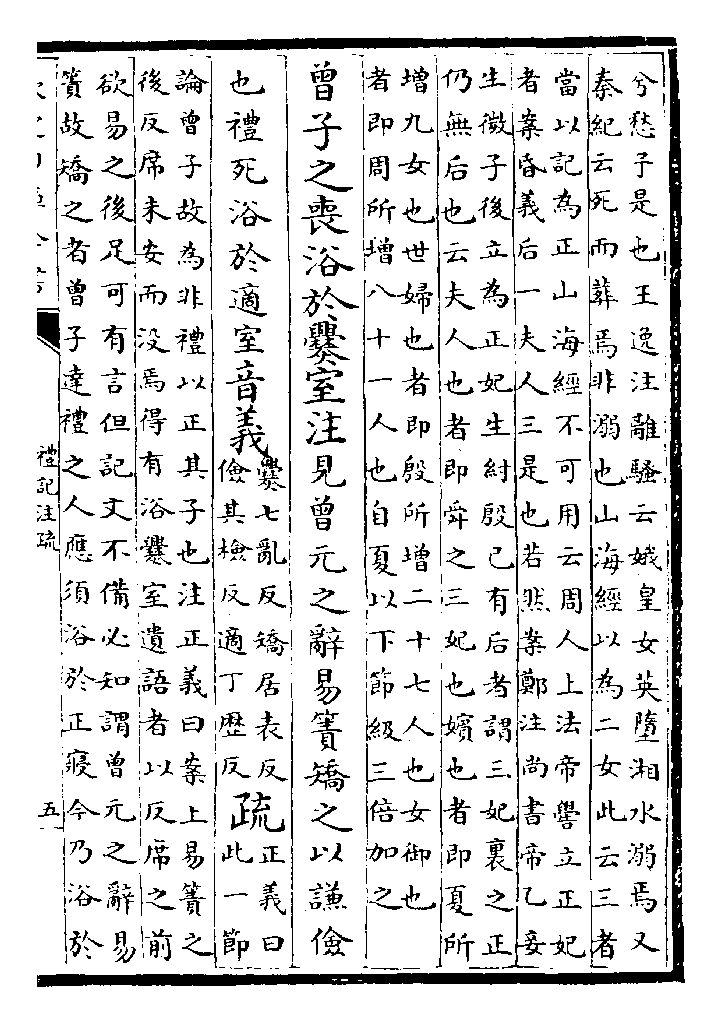 兮愁子是也王逸注離騷云娥皇女英墮湘水溺焉又
秦紀云死而葬焉非溺也山海經以為二女此云三者
當以記為正山海經不可用云周人上法帝嚳立正妃
者案昏義后一夫人三是也若然案鄭注尚書帝乙妾
生微子後立為正妃生紂殷已有后者謂三妃裏之正
仍無后也云夫人也者即舜之三妃也嬪也者即夏所
增九女也世婦也者即殷所增二十七人也女御也
者即周所增八十一人也自夏以下節級三倍加之
曾子之喪浴於爨室注見曾元之辭易簀矯之以謙儉
也禮死浴於適室音義
爨七亂反矯居表反
儉其檢反適丁歷反
疏
正義曰
此一節
論曾子故為非禮以正其子也注正義曰案上易簀之
後反席未安而没焉得有浴爨室遺語者以反席之前
欲易之後足可有言但記文不備必知謂曾元之辭易
簀故矯之者曾子達禮之人應須浴於正寢今乃浴於
禮記注疏
五